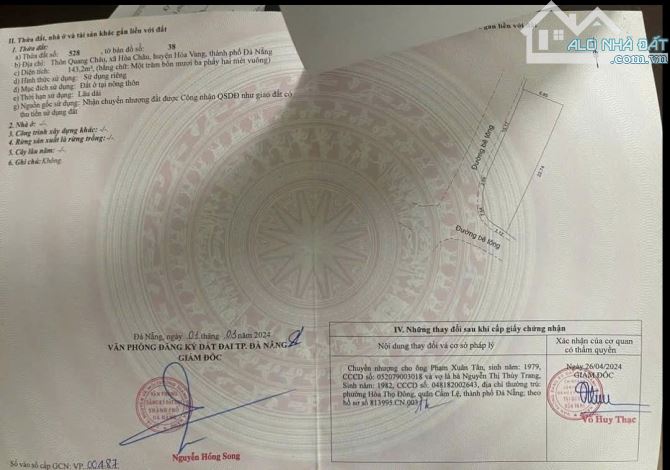 II. Thửa đất, nhà ở và tài sản khác gắn liền với đất
1. Thửa đất:
a) Thửa đất số: 528 , tờ bản đồ số: 38
b) Địa chỉ: Thôn Quang Châu, xã Hòa Châu, huyện Hòa Vang, thành phố Đà Nẵng
c) Diện tích: 143,2m², (bằng chữ: Một trăm bốn mươi ba phẩy hai mét vuông)
d) Hình thức sử dụng: Sử dụng riêng
đ) Mục đích sử dụng: Đất ở tại nông thôn
e) Thời hạn sử dụng: Lâu dài
g) Nguồn gốc sử dụng: Nhận chuyển nhượng đất được Công nhận QSDĐ như giao đất có
thu tiền sử dụng đất
2. Nhà ở: -/-
3. Công trình xây dựng khác: -/-
4. Rừng sản xuất là rừng trồng: -/-
5. Cây lâu năm: -/-
6. Ghi chú: Không.
gắn liền với đất
ALO NHÀ ĐẤT
Đường bê tông
22.74
Đường bê tông
Đà Nẵng, ngày 01 tháng 03 năm 2024
VĂN PHÒNG ĐĂNG KÝ ĐẤT ĐAI TP. ĐÀ NẴNG
GIÁM ĐỐC
Nguyễn Hồng Song
Số vào sổ cấp GCN: VP 00487
IV. Những thay đổi sau khi cấp giấy chứng nhận
Nội dung thay đổi và cơ sở pháp lý
Xác nhận của cơ quan
có thẩm quyền
Chuyển nhượng cho ông Phạm Xuân Tân, sinh năm: 1979,
CCCD số: 052079003018 và vợ là bà Nguyễn Thị Thùy Trang,
Sinh năm: 1982, CCCD số: 048182002643, địa chỉ thường trú:
phường Hòa Thọ Đông, quận Cẩm Lệ, thành phố Đà Nẵng; theo
hồ sơ số 813995.CN.003
26/04/2024
GIÁM ĐỐC
Võ Huy Thạc